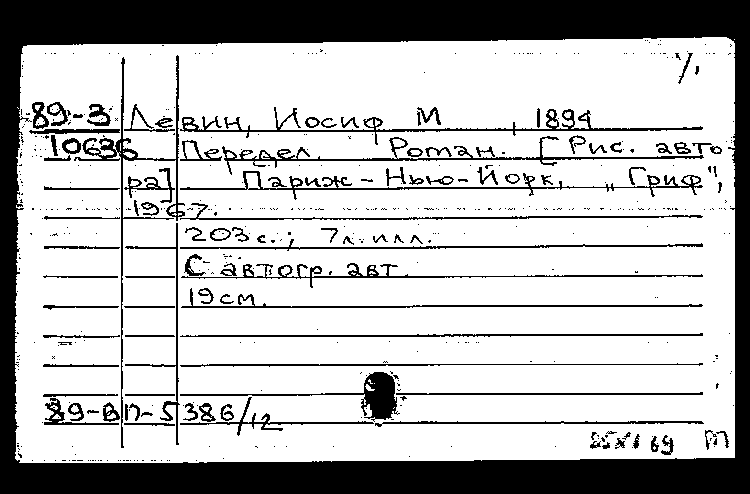 89-3 Левин, Иосиф М , 1894
10636 Передел. Роман. [Рис. авто-
ра] Париж - Нью-Йорк, „Гриф",
1967.
203 с.; 7 л. илл.
С автогр. авт.
19 см.
89-ВП-5386/12